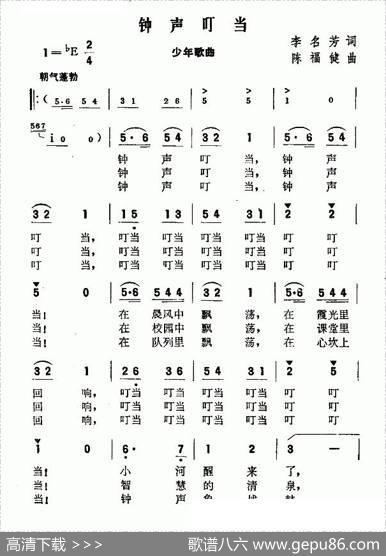 钟声叮当
1=♭E 2/4 少年歌曲 李名芳 词
陈福健 曲
朝气蓬勃
‖:( 5·6 54 31 26 5 5 1 0
567
i o o) 5·6 54 32 1 5·6 54
钟声叮当,钟声
钟声叮当,钟声
钟声叮当,钟声
32 1 15 13 54 31 2 2
叮当,叮当叮当叮当叮当叮叮
叮当,叮当叮当叮当叮当叮叮
叮当,叮当叮当叮当叮当叮叮
5 0 5·6 544 32 1 5·6 544
当!在晨风中飘荡,在霞光里
当!在校园中飘荡,在课堂里
当!在队列里飘荡,在心坎上
32 1 26 36 54 31 2 5
回响,叮当叮当叮当叮当叮叮
回响,叮当叮当叮当叮当叮叮
回响,叮当叮当叮当叮当叮叮
1 0 6·6 7 1 2 3 —
当!小河醒来了,
当!智慧的清泉,
当!钟声
高清下载 >>>>
歌谱八六 www.gepu86.com